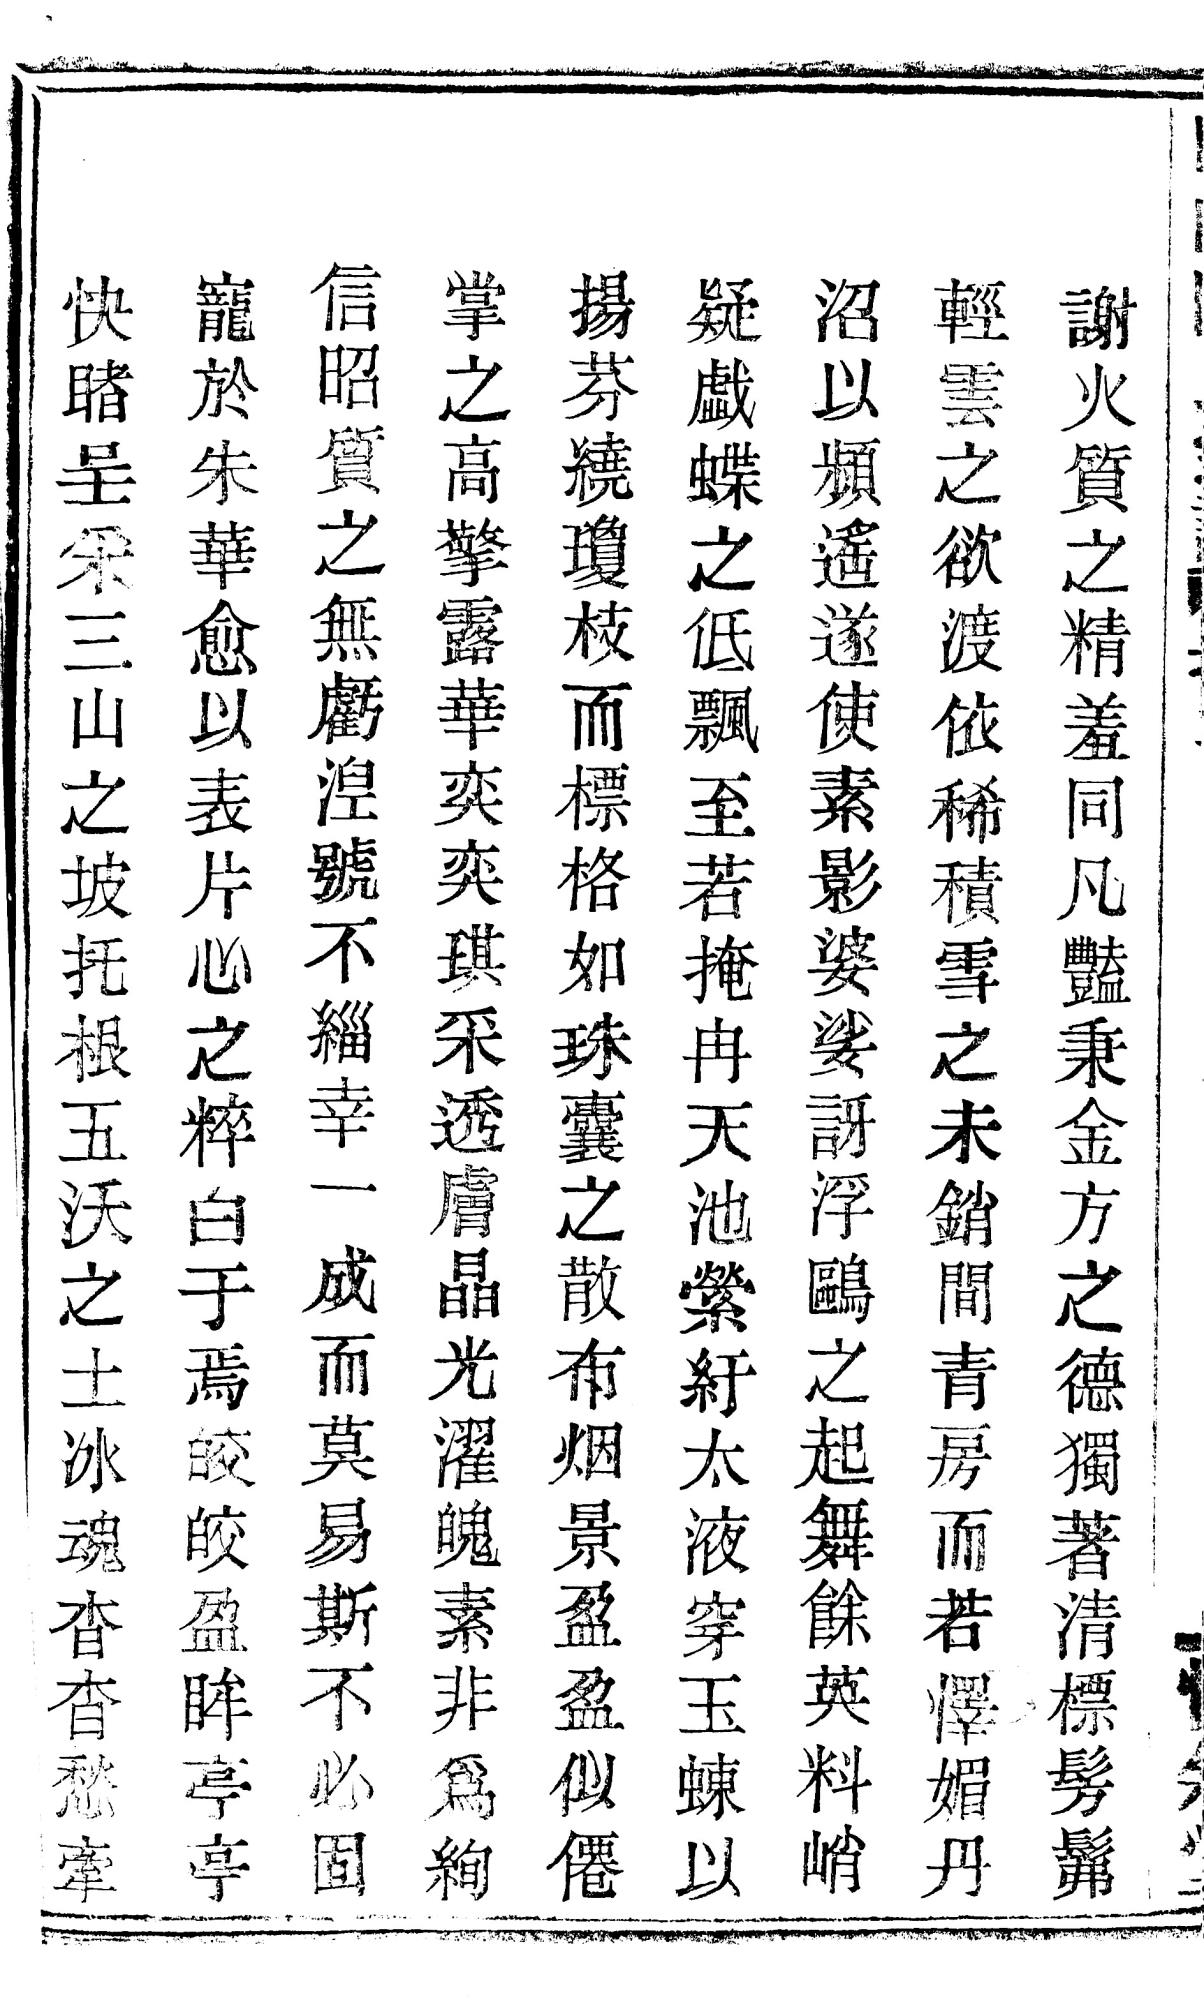 謝火質之精羞同凡豔秉金方之德獨著清標髣髴
輕雲之欲渡依稀積雪之未銷間青房而若懌媚丹
沼以頻遙遂使素影婆娑訝浮鷗之起舞餘英料峭
疑戲蝶之低飄至若掩冉天池縈紆太液穿玉蝀以
揚芬繞瓊枝而標格如珠囊之散布烟景盈盈似僊
掌之高擎露華奕奕琪采透膚晶光濯魄素非爲絢
信昭質之無虧湼號不緇幸一成而莫易斯不必固
寵於朱華愈以表片心之粹白于焉皎皎盈眸亭亭
快睹呈采三山之坡托根五沃之土冰魂杳杳愁牽